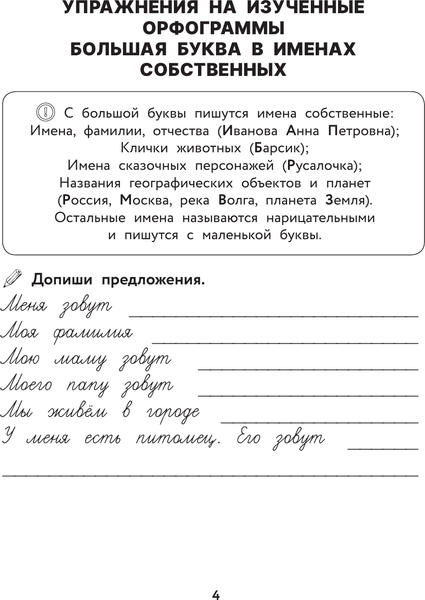 УПРАЖНЕНИЯ НА ИЗУЧЕННЫЕ
ОРФОГРАММЫ
БОЛЬШАЯ БУКВА В ИМЕНАХ
СОБСТВЕННЫХ
С большой буквы пишутся имена собственные:
Имена, фамилии, отчества (Иванова Анна Петровна);
Клички животных (Барсик);
Имена сказочных персонажей (Русалочка);
Названия географических объектов и планет
(Россия, Москва, река Волга, планета Земля).
Остальные имена называются нарицательными
и пишутся с маленькой буквы.
Допиши предложения.
Меня зовут
Моя фамилия
Мою маму зовут
Моего папу зовут
Мы живём в городе
У меня есть питомец. Его зовут
4